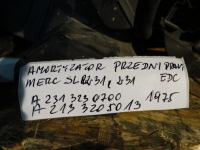 AMORTYZATOR PRZEDNI PRAWY
MERC SL R231, 231 EDC
A 231 323 0700 1975
A 213 320 50 13